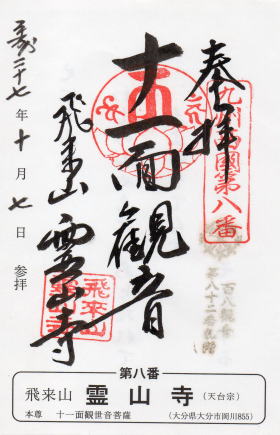 奉拝
九州西國第八番
十一面觀音
飛来山 霊山寺
飛来山
平成二十七年十月七日 参拝
第八番
飛来山 霊山寺 (天台宗)
本尊 十一面観世音菩薩 (大分県大分市岡川855)